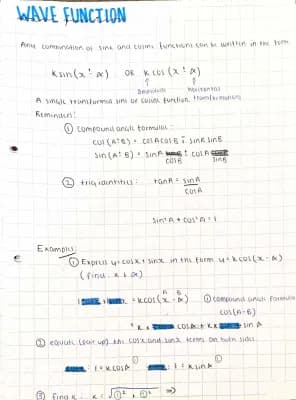 WAVE FUNCTION
Any combination of sine and cosine functions can be written in the form
k sin (x ± α) OR k cos (x ± α)
↑ ↑
amplitude horizontal
A single transformed sine or cosine function. transformation
Reminders:
① compound angle formulae:
cos (A±B) = cosA cosB ∓ sinA sinB
sin (A±B) = sinA cosB ± cosA sinB
② trig identities: tanA = sinA
cosA
sin²A + cos²A = 1
Examples:
① Express y = cosx + sinx in the form y = k cos (x - α)
(find k & α)
A B
= k cos (x - α) ① compound angle formula
cos (A-B)
② equate (pair up) the cosx and sinx terms on both sides.
: 1 = k cosα ① : 1 = k sinα ②
③ find k. k = √①² + ②² ⇒